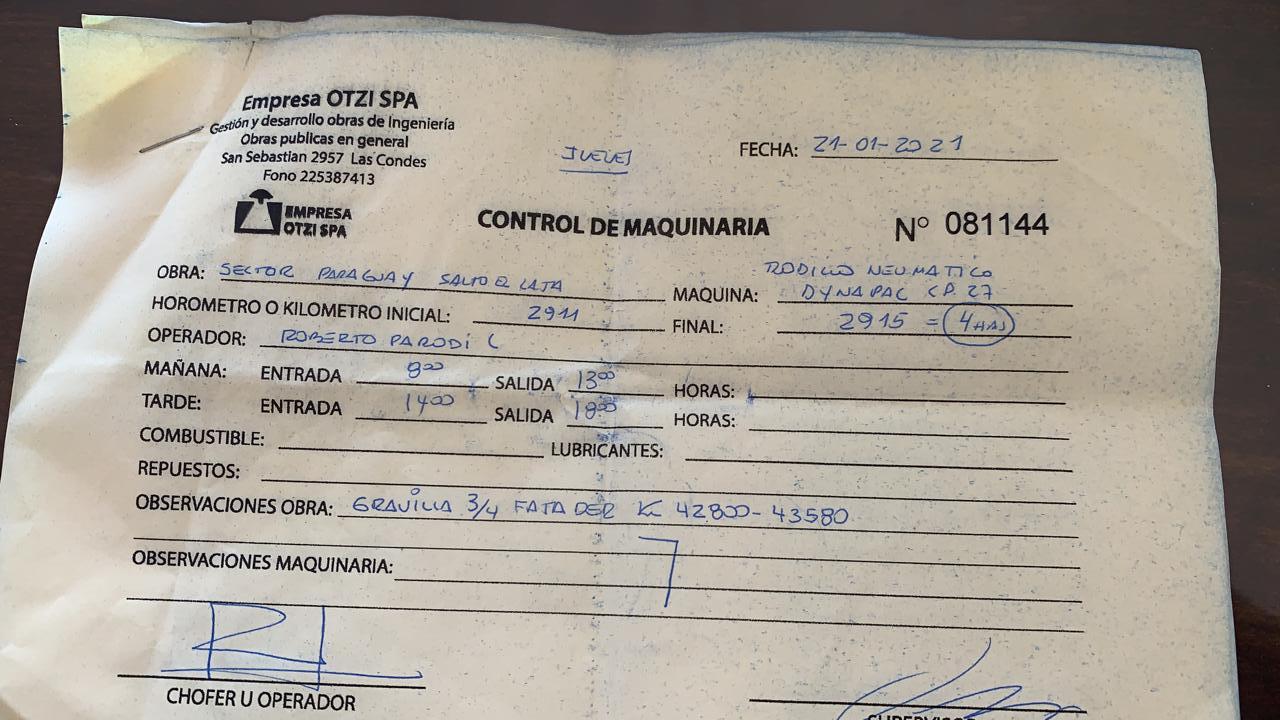 Empresa OTZI SPA
Gestión y desarrollo obras de Ingeniería
Obras publicas en general
San Sebastian 2957 Las Condes
Fono 225387413
JUEVES
FECHA: 21-01-2021
EMPRESA
OTZI SPA
CONTROL DE MAQUINARIA
Nº 081144
OBRA: SECTOR PARAGUAY SALTO EL LAJA
MAQUINA: RODILLO NEUMATICO
DYNAPAC CP.27
HOROMETRO O KILOMETRO INICIAL: 2911
FINAL: 2915 = 4 HRS
OPERADOR: ROBERTO PARODI C
MAÑANA: ENTRADA 800 SALIDA 1300 HORAS:
TARDE: ENTRADA 1400 SALIDA 1800 HORAS:
COMBUSTIBLE: LUBRICANTES:
REPUESTOS:
OBSERVACIONES OBRA: GRAVILLA 3/4 FAJA DER 42.800-43580
OBSERVACIONES MAQUINARIA:
CHOFER U OPERADOR